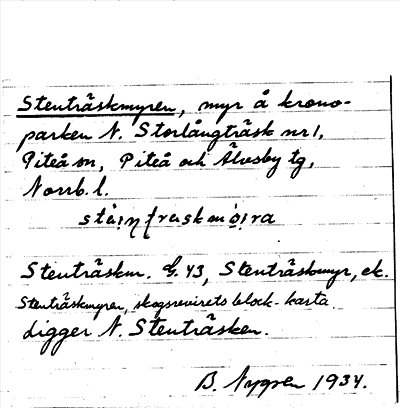 Stenträskmyren, myr å krono-
parken N. Storlångträsk nr 1,
Piteå sn, Piteå och Älvsby tg,
Norrb. l.
Stenträskm. G. 43, Stenträskmyr, ek.
Stenträskmyren, skogsrevirets block-karta
Ligger N. Stenträsken.
B. Nygren 1934.